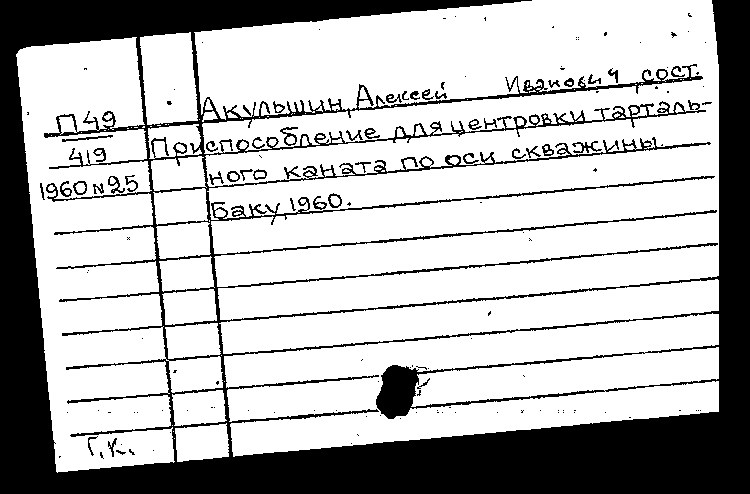 П49
419
1960 N25
Акульшин, Алексей Иванович, сост.
Приспособление для центровки тарталь-
ного каната по оси скважины.
Баку, 1960.
Г.К.